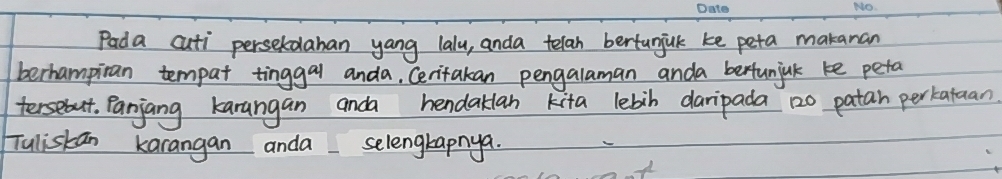 Date No.
Pada cuti persekolahan yang lalu, anda telah bertunjuk ke peta makanan
berhampiran tempat tinggal anda. Ceritakan pengalaman anda bertunjuk ke peta
tersebut. Panjang karangan anda hendaklah kita lebih daripada 120 patah perkataan.
Tuliskan karangan anda selengkapnya.